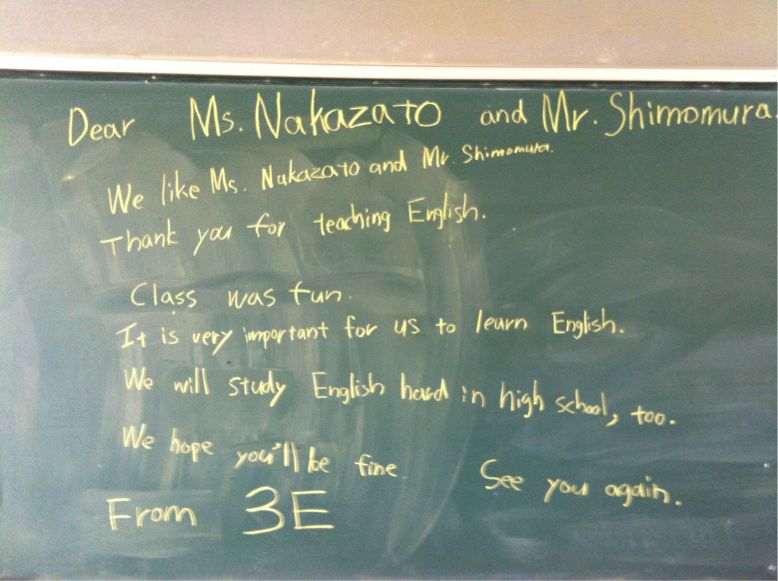 Dear Ms. Nakazato and Mr. Shimomura.
We like Ms. Nakazato and Mr. Shimomura.
Thank you for teaching English.
Class was fun.
It is very important for us to learn English.
We will study English hard in high school, too.
We hope you'll be fine. See you again.
From 3E